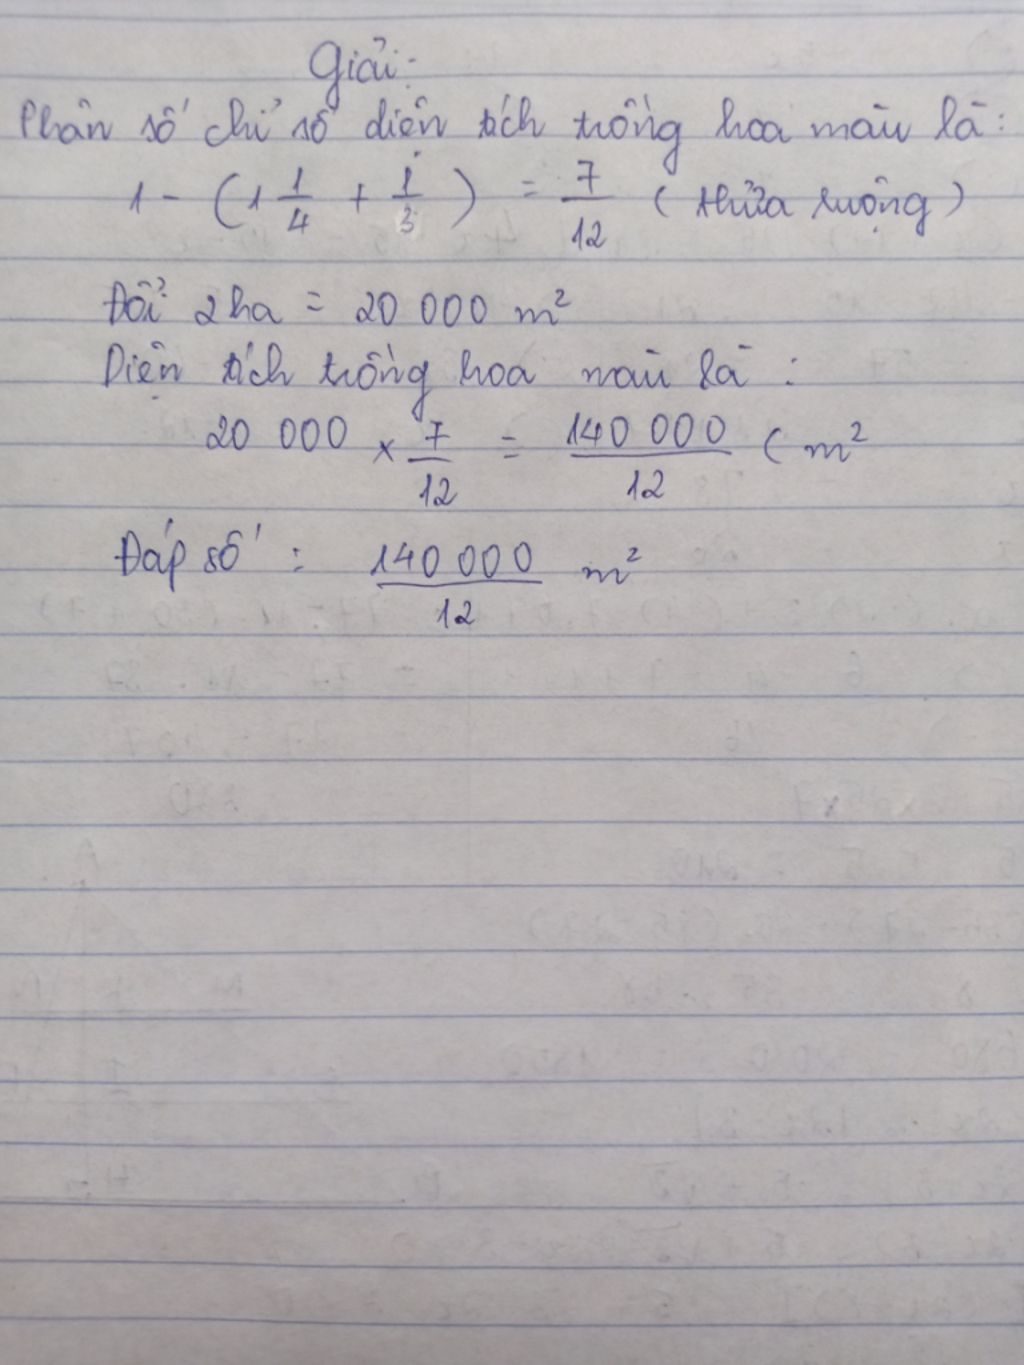 Giải:
Phân số chỉ số diện tích trồng hoa màu là:
1 - (1 1/4 + 1/3) = 7/12 (thửa ruộng)
Đổi 2ha = 20 000 m²
Diện tích trồng hoa màu là :
20 000 × 7/12 = 140 000/12 ( m²
Đáp số : 140 000/12 m²